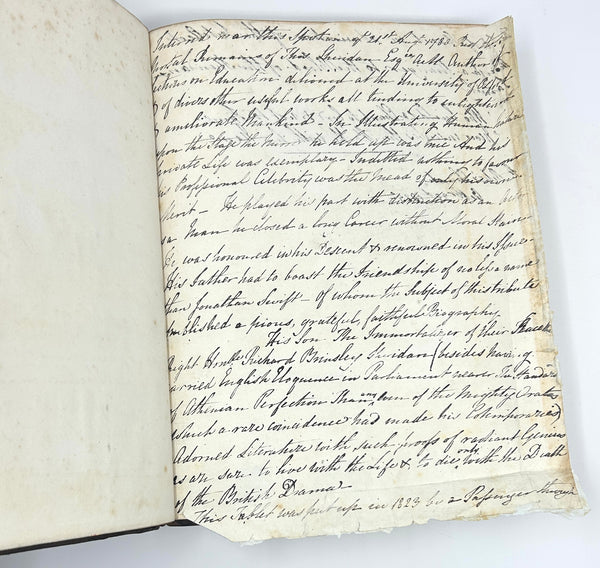 Interred near this Spot on ye 21st Augst 1788 Rest the
Mortal Remains of Thos Sheridan Esqre A.M. Author of
Lectures on Education delivered at the University of Oxford
& of divers other useful works all tending to enlighten or
ameliorate Mankind. In Illustrating Human Nature
upon the Stage the Mirror he held up was true And his
private Life was exemplary – Indebted nothing to favour
his Professional Celebrity was the Meed of his own
Merit – He played his part with distinction as an Actor
as a Man – closed a long Career without Moral Stain
He was honoured in his Descent & renowned in his Issue –
His father had to boast the Friendship of no less a name
than Jonathan Swift – of whom the Subject of this tribute
published a pious, grateful, faithful Biography.
His Son – The Immortalizer of their Race the
Right Honble Richard Brinsley Sheridan (besides having
carried English Eloquence in Parliament nearer The Standard
of Athenian Perfection than any of the Mighty Orators
which a rare coincidence had made his Cotemporaries)
Adorned Literature with such proofs of radiant Genius
as are sure to live with the Life & to die only with the Death
of the British Drama
This Tablet was put up in 1823 by a Passenger through